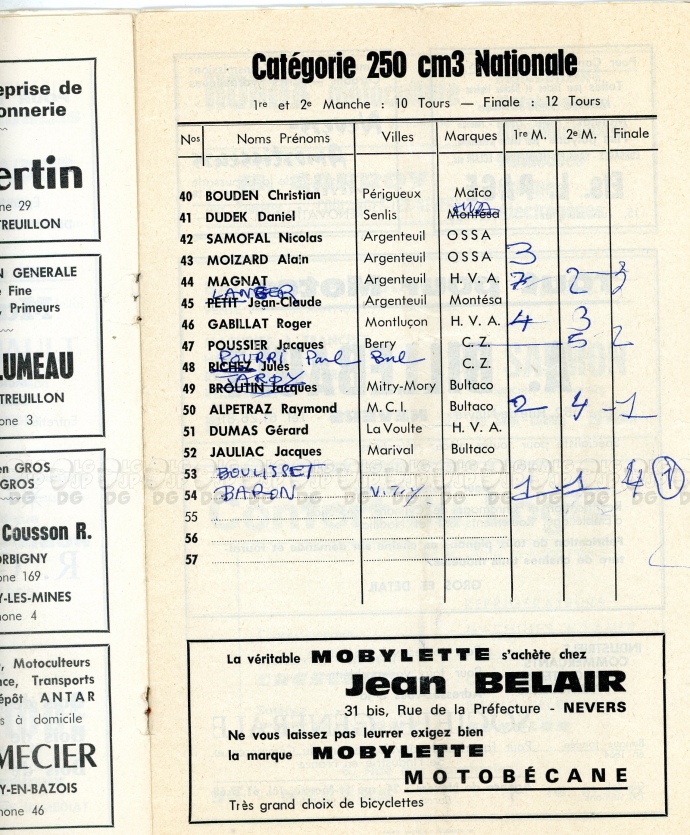 eprise de
onnerie
ertin
ne 29
TREUILLON
N GENERALE
e Fine
, Primeurs
LUMEAU
TREUILLON
one 3
en GROS
GROS
Cousson R.
ORBIGNY
one 169
Y-LES-MINES
hone 4
, Motoculteurs
nce, Transports
épôt ANTAR
s à domicile
MECIER
Y-EN-BAZOIS
hone 46
Catégorie 250 cm3 Nationale
1re et 2e Manche : 10 Tours — Finale : 12 Tours
Nos Noms Prénoms Villes Marques 1re M. 2e M. Finale
40 BOUDEN Christian Périgueux Maïco
41 DUDEK Daniel Senlis Montésa
42 SAMOFAL Nicolas Argenteuil OSSA
43 MOIZARD Alain Argenteuil OSSA 3
44 MAGNAT Argenteuil H. V. A. 7 2 3
LANGER
45 PETIT Jean-Claude Argenteuil Montésa
46 GABILLAT Roger Montluçon H. V. A. 4 3
47 POUSSIER Jacques Berry C. Z. 5 2
POURRI Paul
48 RICHEZ Jules C. Z.
JARDY
49 BROUTIN Jacques Mitry-Mory Bultaco
50 ALPETRAZ Raymond M. C. I. Bultaco 2 4 1
51 DUMAS Gérard La Voulte H. V. A.
52 JAULIAC Jacques Marival Bultaco
53 BOULISSET
54 BARON 1 1 4 1
55
56
57
La véritable MOBYLETTE s'achète chez
Jean BELAIR
31 bis, Rue de la Préfecture - NEVERS
Ne vous laissez pas leurrer exigez bien
la marque MOBYLETTE
MOTOBÉCANE
Très grand choix de bicyclettes